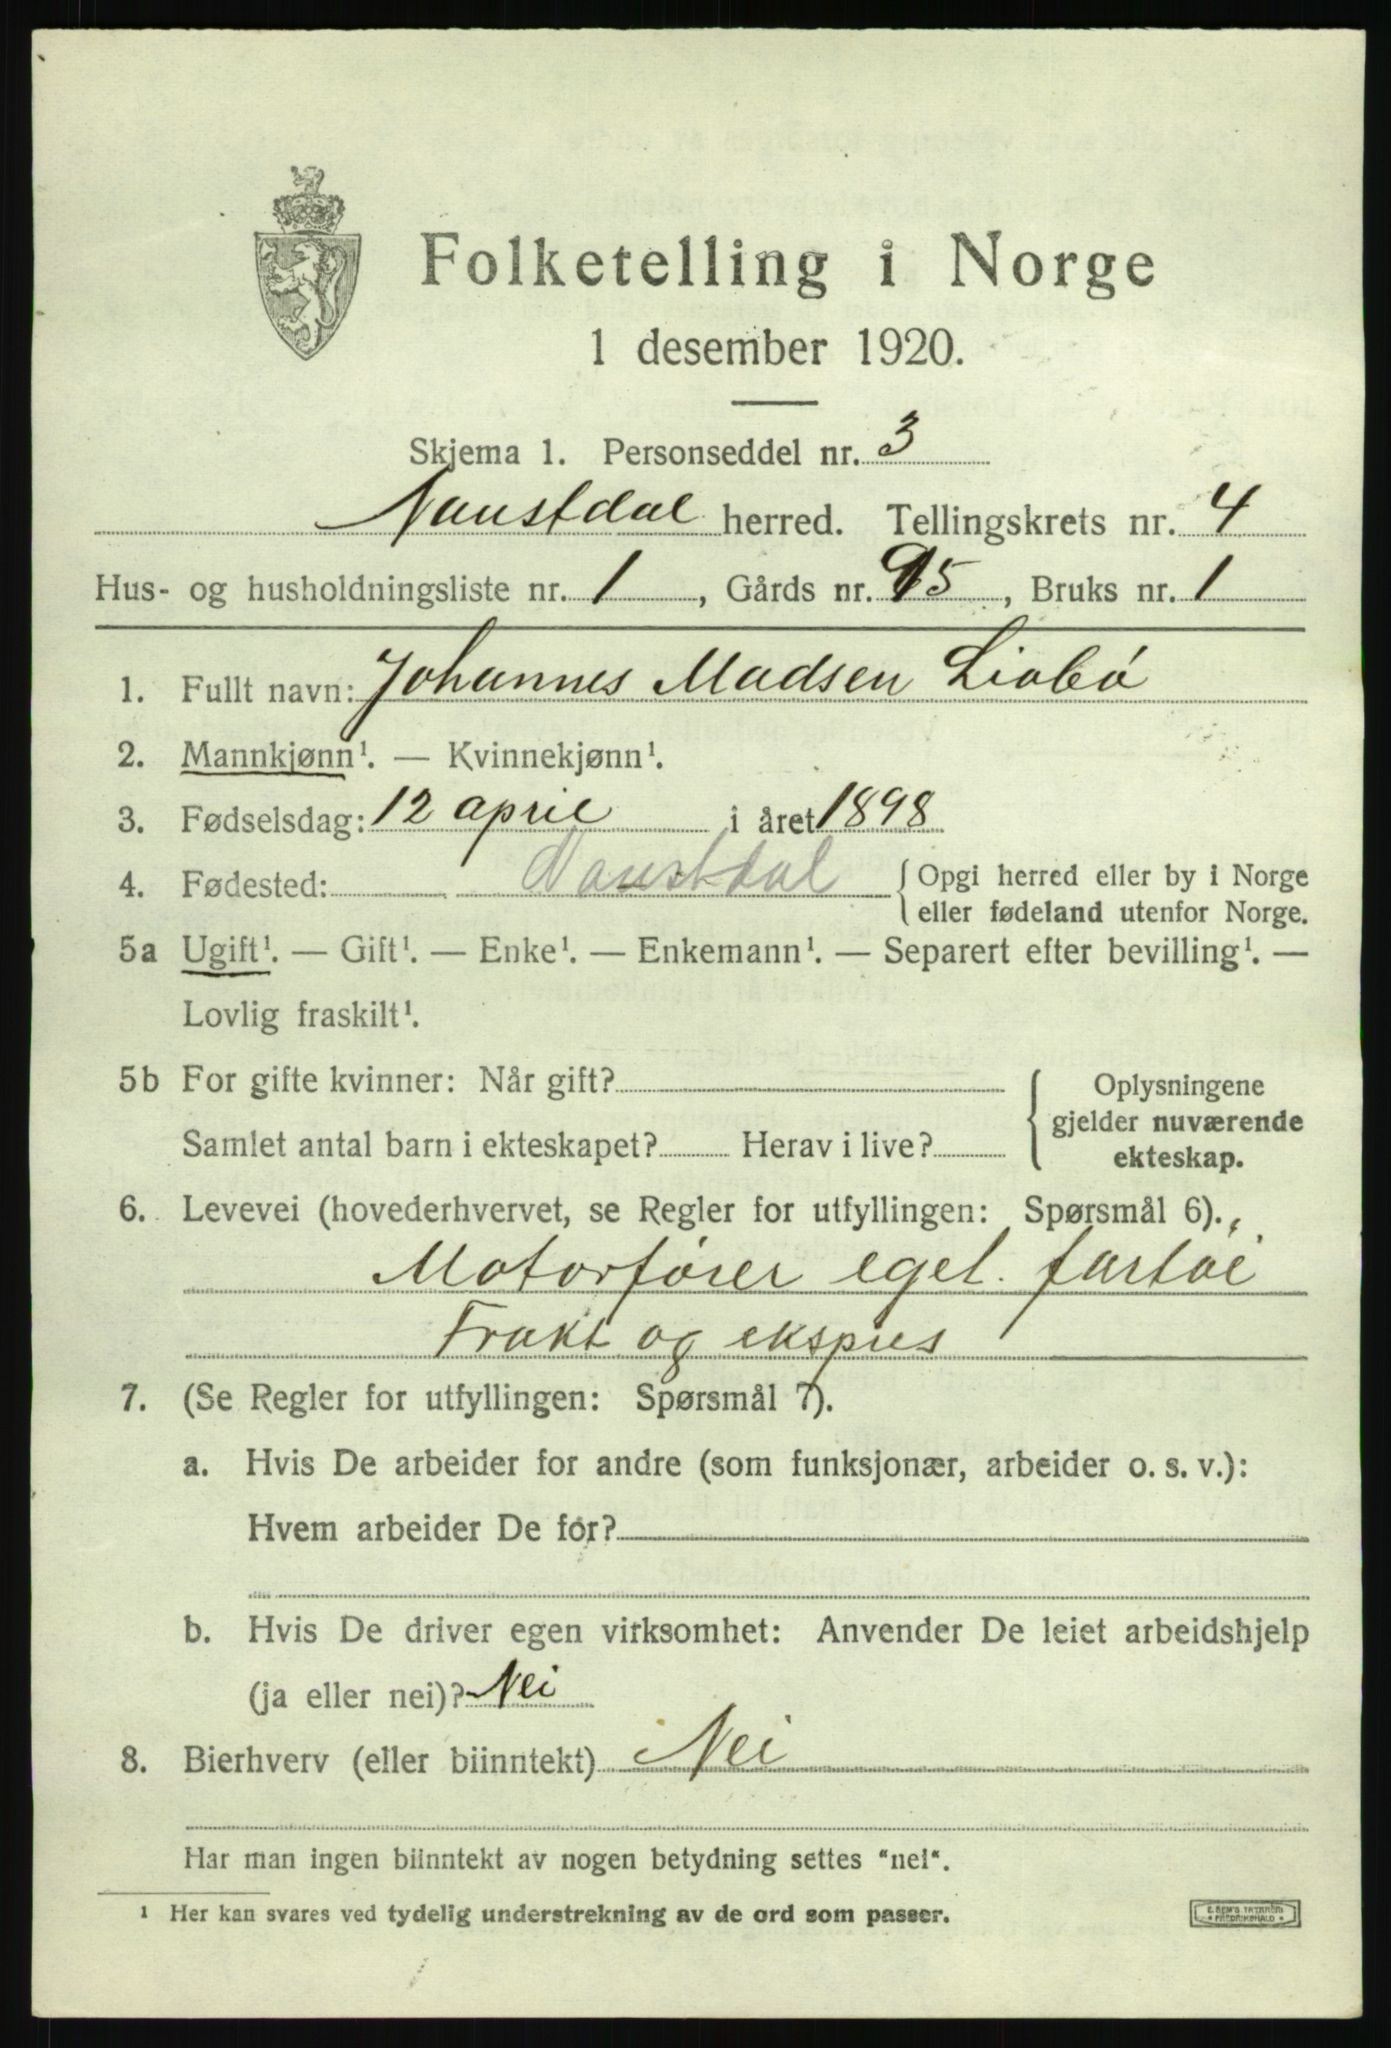 Folketelling i Norge
1 desember 1920.
Skjema 1. Personseddel nr. 3
Naustdal herred. Tellingskrets nr. 4
Hus- og husholdningsliste nr. 1, Gårds nr. 95, Bruks nr. 1
1. Fullt navn: Johannes Madsen Liabö
2. Mannkjønn¹. — Kvinnekjønn¹.
3. Fødselsdag: 12 april i året 1898
4. Fødested: Naustdal {Opgi herred eller by i Norge
eller fødeland utenfor Norge.
5a Ugift¹. — Gift¹. — Enke¹. — Enkemann¹. — Separert efter bevilling¹. —
Lovlig fraskilt¹.
5b For gifte kvinner: Når gift?
Samlet antal barn i ekteskapet? Herav i live?
{Oplysningene
gjelder nuværende
ekteskap.
6. Levevei (hovederhvervet, se Regler for utfyllingen: Spørsmål 6).
Motorförer eget. fartöi
Frakt og ekspres
7. (Se Regler for utfyllingen: Spørsmål 7).
a. Hvis De arbeider for andre (som funksjonær, arbeider o. s. v.):
Hvem arbeider De for?
b. Hvis De driver egen virksomhet: Anvender De leiet arbeidshjelp
(ja eller nei)? Nei
8. Bierhverv (eller biinntekt) Nei
Har man ingen biinntekt av nogen betydning settes "nei".
¹ Her kan svares ved tydelig understrekning av de ord som passer.